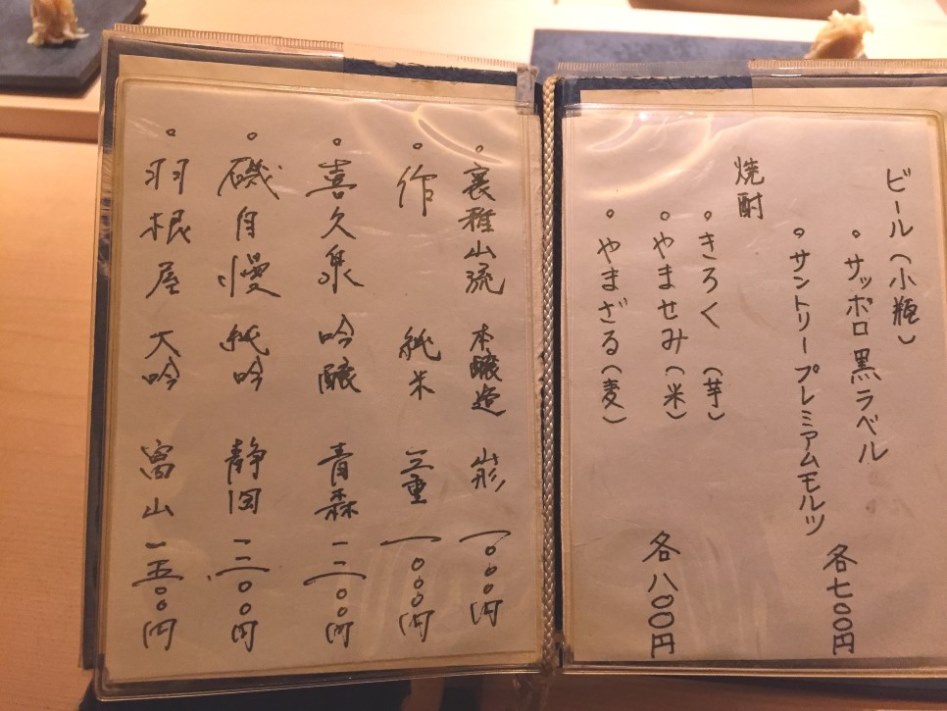 ビール(小瓶)
。サッポロ黒ラベル
。サントリープレミアムモルツ
各七〇〇円
焼酎
。きろく(芋)
。やませみ(米)
。やまざる(麦)
各八〇〇円
。裏雅山流 本醸造 山形 一〇〇〇円
。作 純米 三重 一〇〇〇円
。喜久泉 吟醸 青森 一二〇〇円
。磯自慢 純吟 静岡 一二〇〇円
。羽根屋 大吟 富山 一五〇〇円